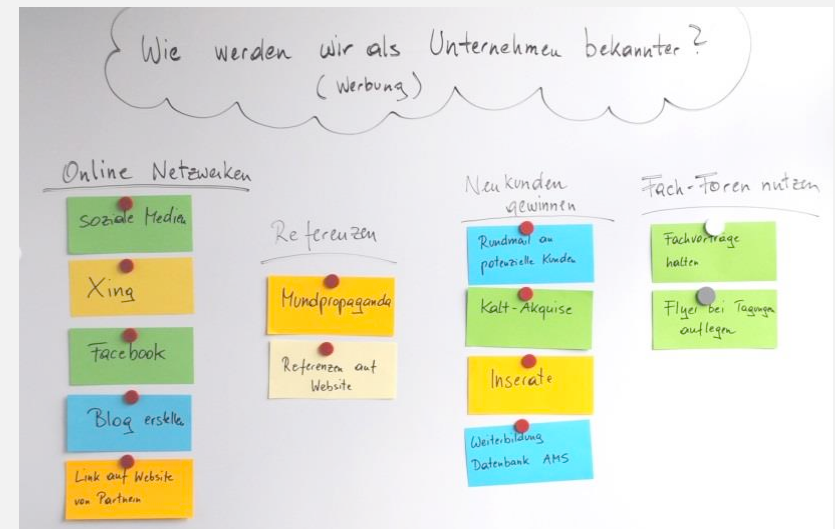 Wie werden wir als Unternehmen bekannter?
(Werbung)
Online Netzwerken
soziale Medien
Xing
Facebook
Blog erstellen
Link auf Website
von Partnern
Referenzen
Mundpropaganda
Referenzen auf
Website
Neukunden
gewinnen
Rundmail an
potenzielle Kunden
Kalt-Akquise
Inserate
Weiterbildung
Datenbank AMS
Fach-Foren nutzen
Fachvorträge
halten
Flyer bei Tagungen
auflegen